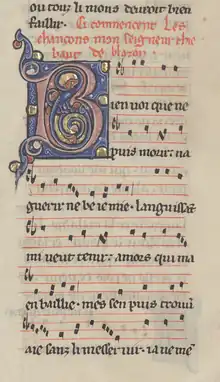 ou tour li mons devroit bien
fausir. Ci commencent Les
chançons mon seigneur the
baut de blazon.
B
ien voi que ne
puis morir. na
guerir ne be ie mie. languissāt
mi veut tenir. amors qui ma
en baillie. mes sen puis trouv
aie sanz li messervir. ia ne me